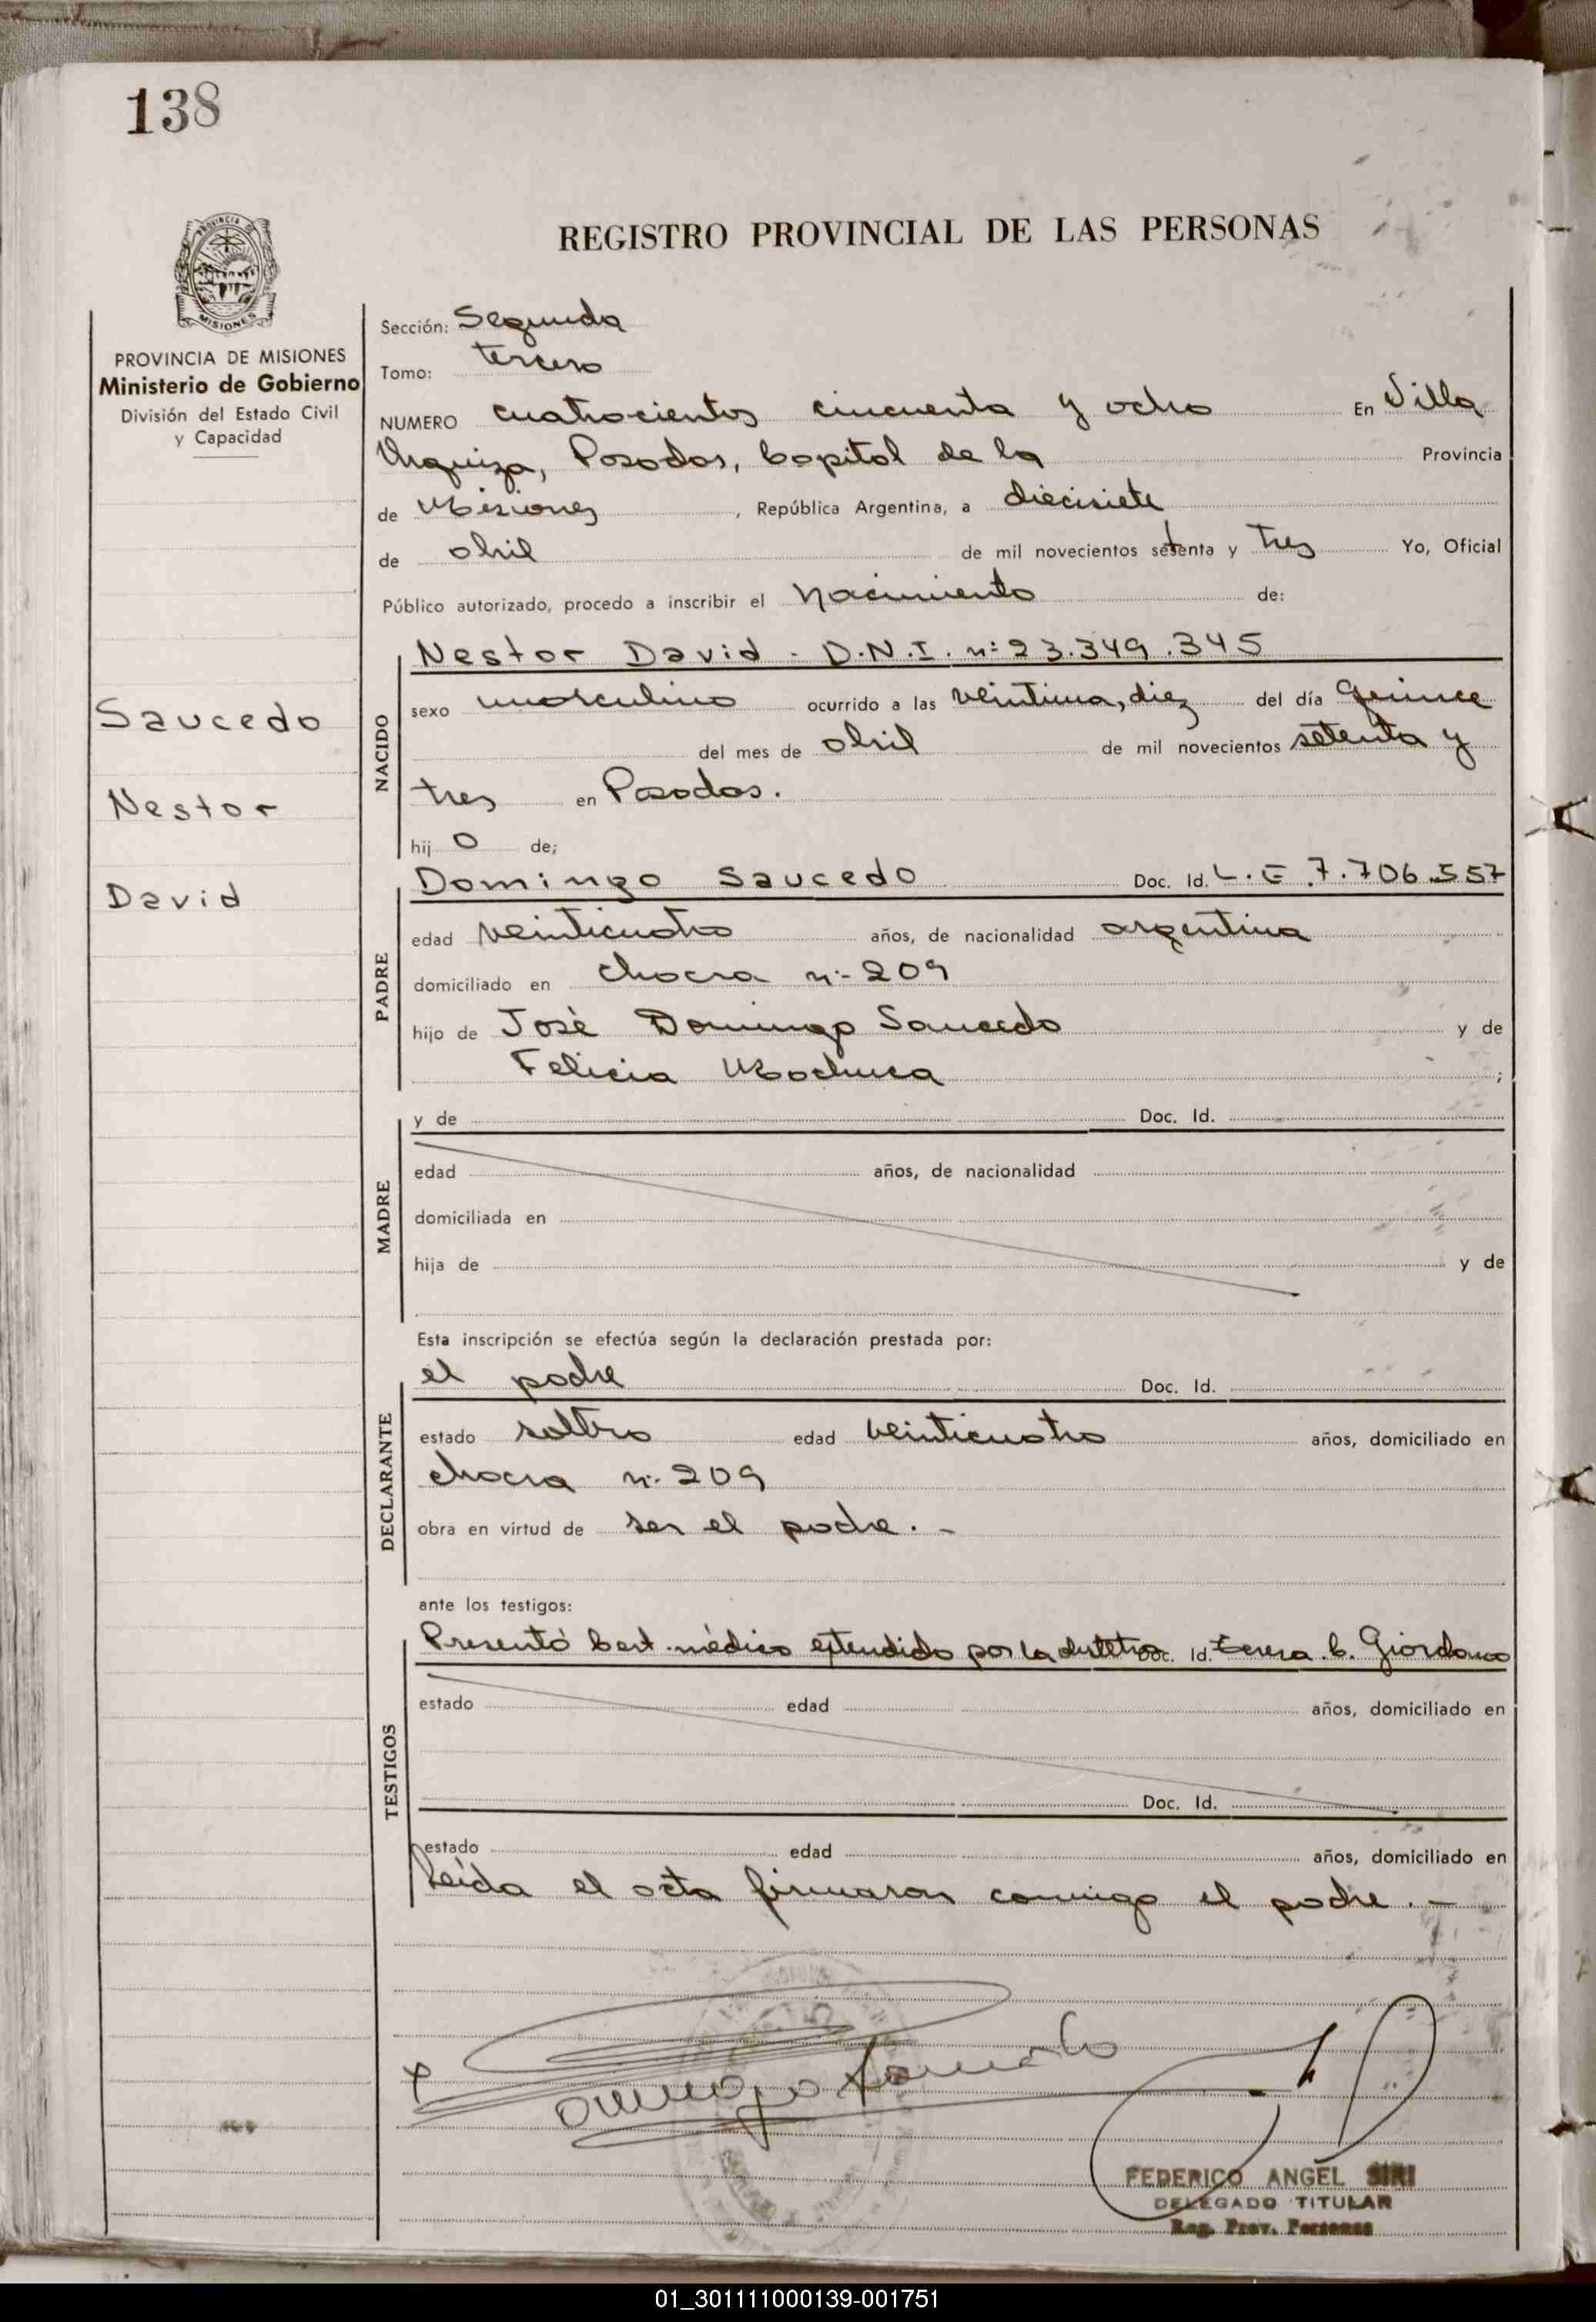 138
PROVINCIA
MISIONES
PROVINCIA DE MISIONES
Ministerio de Gobierno
División del Estado Civil
y Capacidad
Saucedo
Nestor
David
REGISTRO PROVINCIAL DE LAS PERSONAS
Sección: Segunda
Tomo: tercero
NUMERO cuatrocientos cincuenta y ocho En Villa
Urquiza, Posadas, Capital de la Provincia
de Misiones, República Argentina, a diecisiete
de abril de mil novecientos setenta y tres Yo, Oficial
Público autorizado, procedo a inscribir el nacimiento de:
NACIDO
Nestor David - D.N.I. nº 23.349.345
sexo masculino ocurrido a las veintiuna, diez del día quince
del mes de abril de mil novecientos setenta y
tres en Posadas.
hijo de;
PADRE
Domingo Saucedo Doc. Id. L.E 7.706.557
edad veinticuatro años, de nacionalidad argentina
domiciliado en chacra nº 209
hijo de José Domingo Saucedo y de
Felicia Machuca ;
MADRE
y de Doc. Id.
edad años, de nacionalidad
domiciliada en
hija de y de
Esta inscripción se efectúa según la declaración prestada por:
DECLARANTE
el padre Doc. Id.
estado soltero edad veinticuatro años, domiciliado en
chacra nº 209
obra en virtud de ser el padre. -
ante los testigos:
TESTIGOS
Presentó Cert. médico extendido por la Doc. Id. Teresa C. Giordano
estado edad años, domiciliado en
Doc. Id.
estado edad años, domiciliado en
Leída el acta firmaron conmigo el padre. -
FEDERICO ANGEL SIRI
DELEGADO TITULAR
Reg. Prov. Personas
01_301111000139-001751